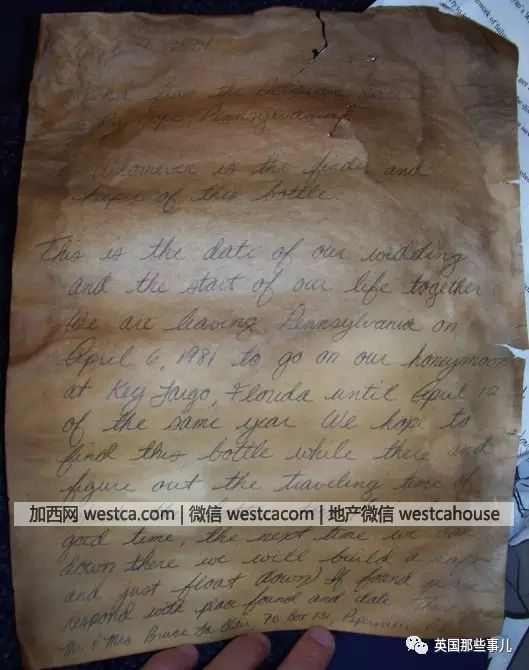 1981
from the
Hope, Pennsylvania
Whomever is the finder and
keeper of this bottle.
This is the date of our wedding
and the start of our life together.
We are leaving Pennsylvania on
April 6, 1981 to go on our honeymoon
at Key Largo, Florida until April 12
of the same year. We hope to
find this bottle while there and
figure out the traveling time of
加西网 westca.com | 微信 westcacom | 地产微信 westcahouse
good time, the next time we can
down there we will build a raft
and just float down) If found please
respond with place found and date.
Mr. & Mrs. Bruce
英国那些事儿